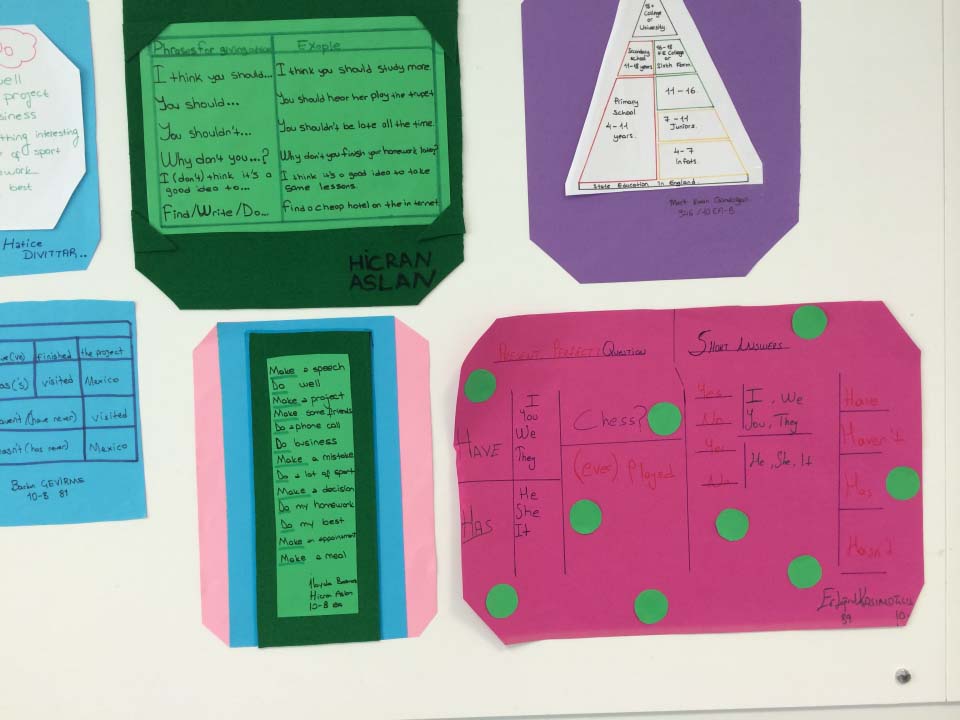 well
project
business
thing interesting
of sport
best
Hatice
DIVITTAR..
Phrases for giving advice Exaple
I think you should... I think you should study more.
You should... You should hear her play the trupet
You shouldn't... You shouldn't be late all the time.
Why don't you...? Why don't you finish your homework later?
I (don't) think it's a good idea to... I think it's a good idea to take
some lessons.
Find/Write/Do... Find a cheap hotel on the internet
HİCRAN
ASLAN
18+
College
or
University.
Secondary
school
11-18 years
16-18
F.E College
or
Sixth Form
11-16.
Primary
School
4-11
years.
7-11
Juniors.
4-7
Infats.
State Education In England
finished the project
visited Mexico
(have never) visited
(has never) Mexico
GEVİRME
10-B 81
Make a speech
Do well
Make a project
Make some friends
Do a phone call
Do business
Make a mistake
Do a lot of sport
Make a decision
Do my homework
Do my best
Make an appointment
Make a meal
Hicran Aslan
10-B
PRESENT PERFECT: QUESTION
HAVE
I
You
We
They
Chess?
(ever) Played
HAS
He
She
It
SHORT ANSWERS
Yes
No
Yes
No
I, We
You, They
He, She, It
Have
Haven't
Has
Hasn't